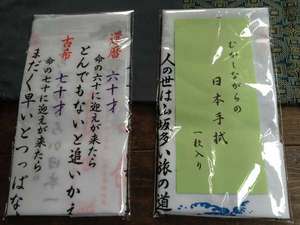 還暦 六十才
命の六十に迎えが来たら
とんでもないと追いかえ
古希 七十才
命の七十に迎えが来たら
まだく早いとつっぱな
むかしながらの
日本手拭
一枚入り
人の世は山坂多い旅の道